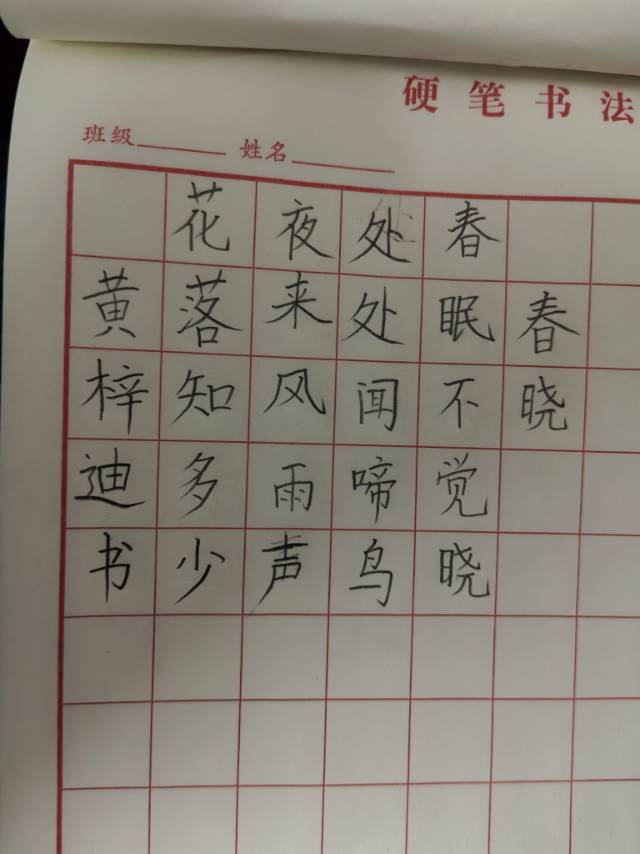 硬笔书法
班级 姓名
春晓
春眠不觉晓
处处闻啼鸟
夜来风雨声
花落知多少
黄梓迪书